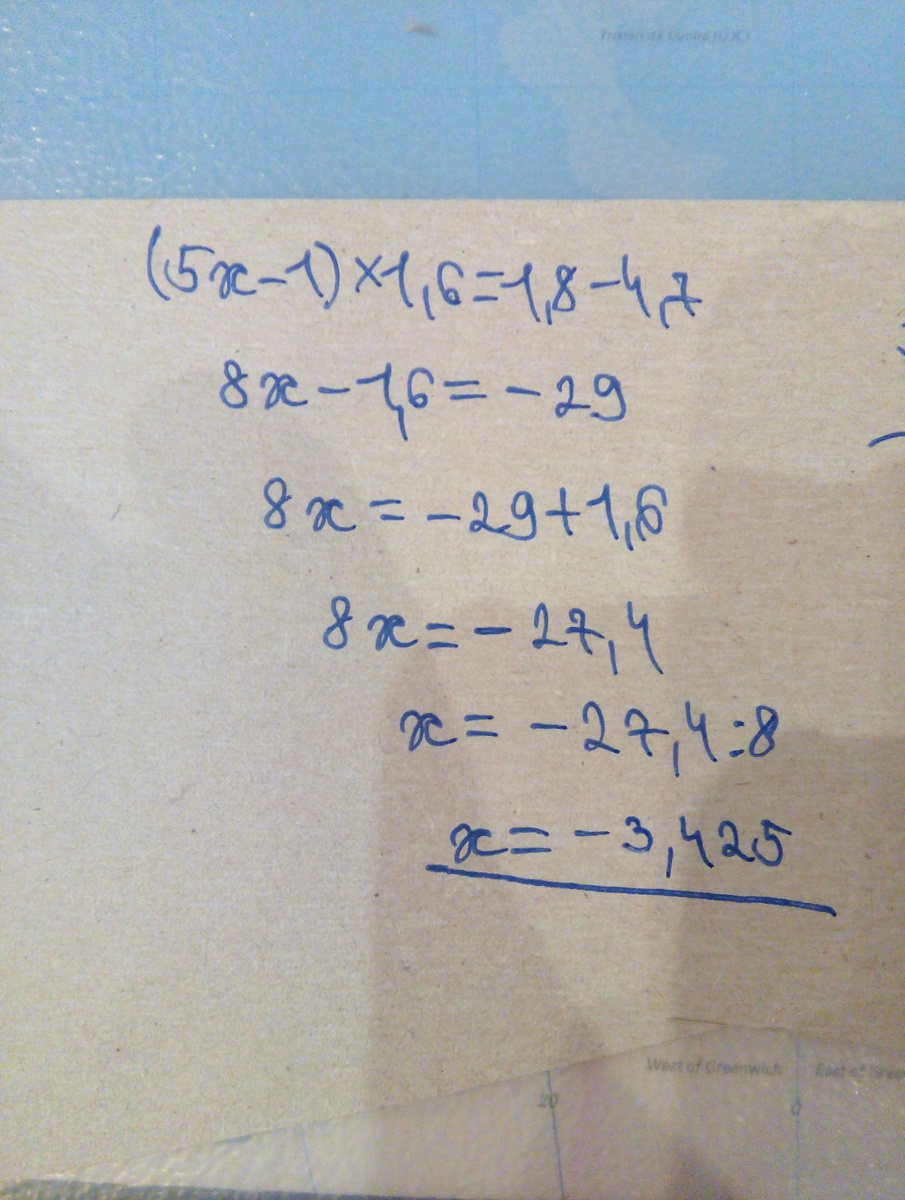 Tristan da Cunha (U.K.)
(5x-1)×1,6=1,8-4,7
8x-1,6=-29
8x=-29+1,6
8x=-27,4
x=-27,4:8
x=-3,425
West of Greenwich
East of
20
0